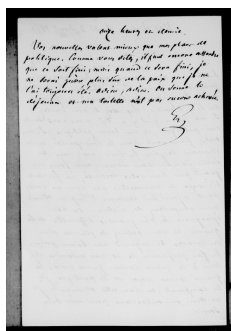 onze heures et demie.
Vos nouvelles valent mieux que ma place de
politique. Comme vous dites, il faut encore attendre
que ce soit fini, mais quand ce sera fini, je
ne serai guère plus sûr de la paix que je ne
l'ai toujours été. Adieu, adieu. On sonne le
déjeuner et ma toilette n'est pas encore achevée.